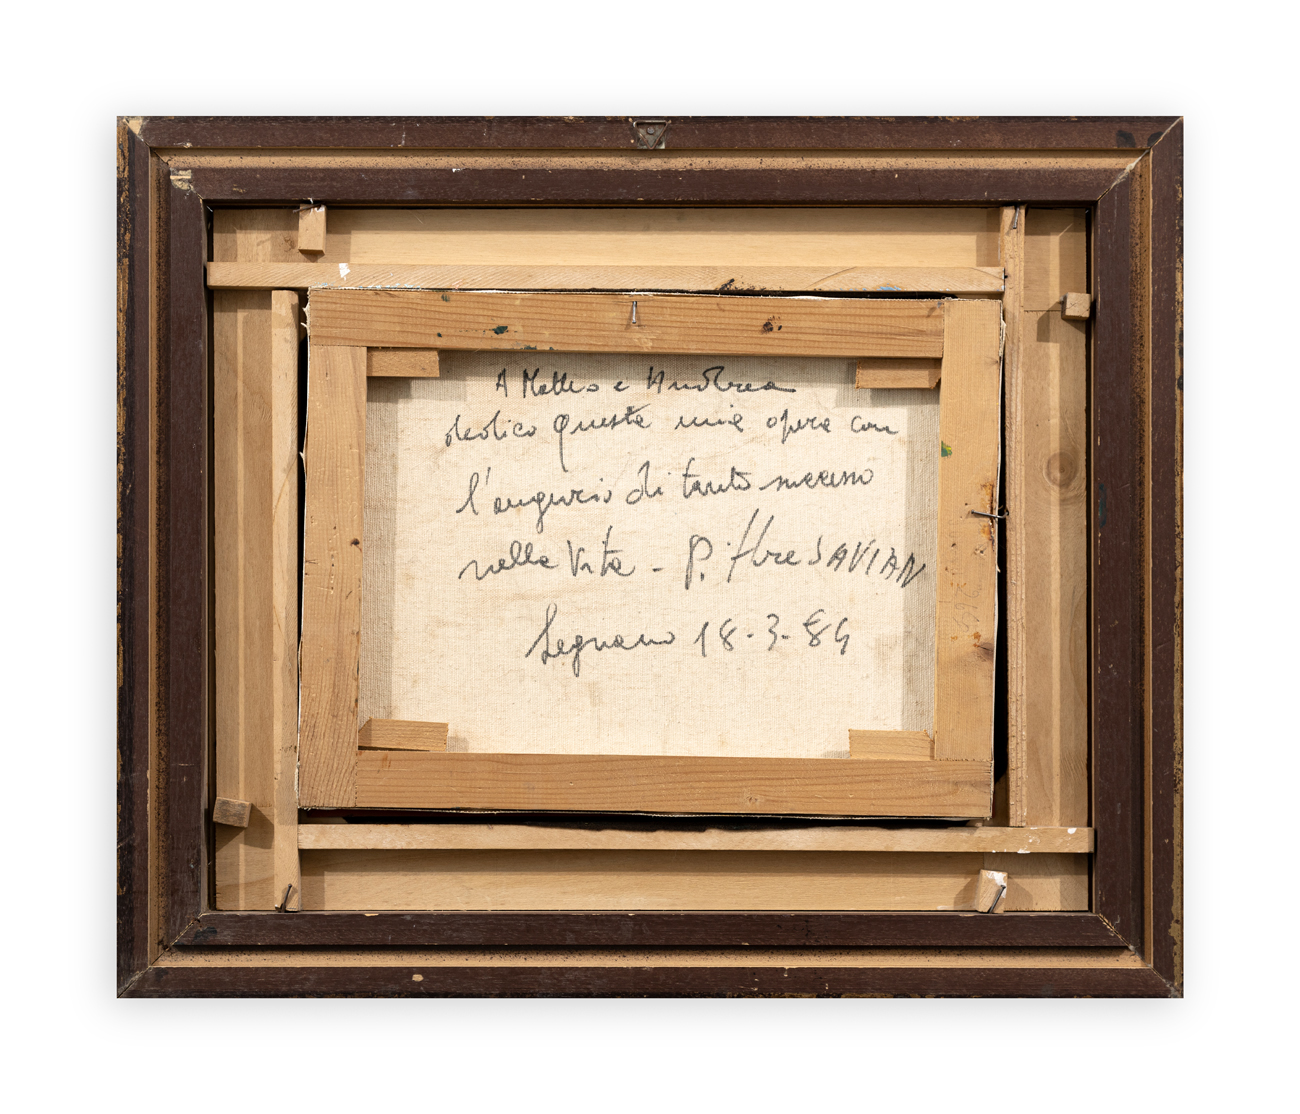 A Matteo e Andrea
dedico questa mia opera con
l'augurio di tanto
nella Vita - P. SAVIAN
Legnano 18-3-84